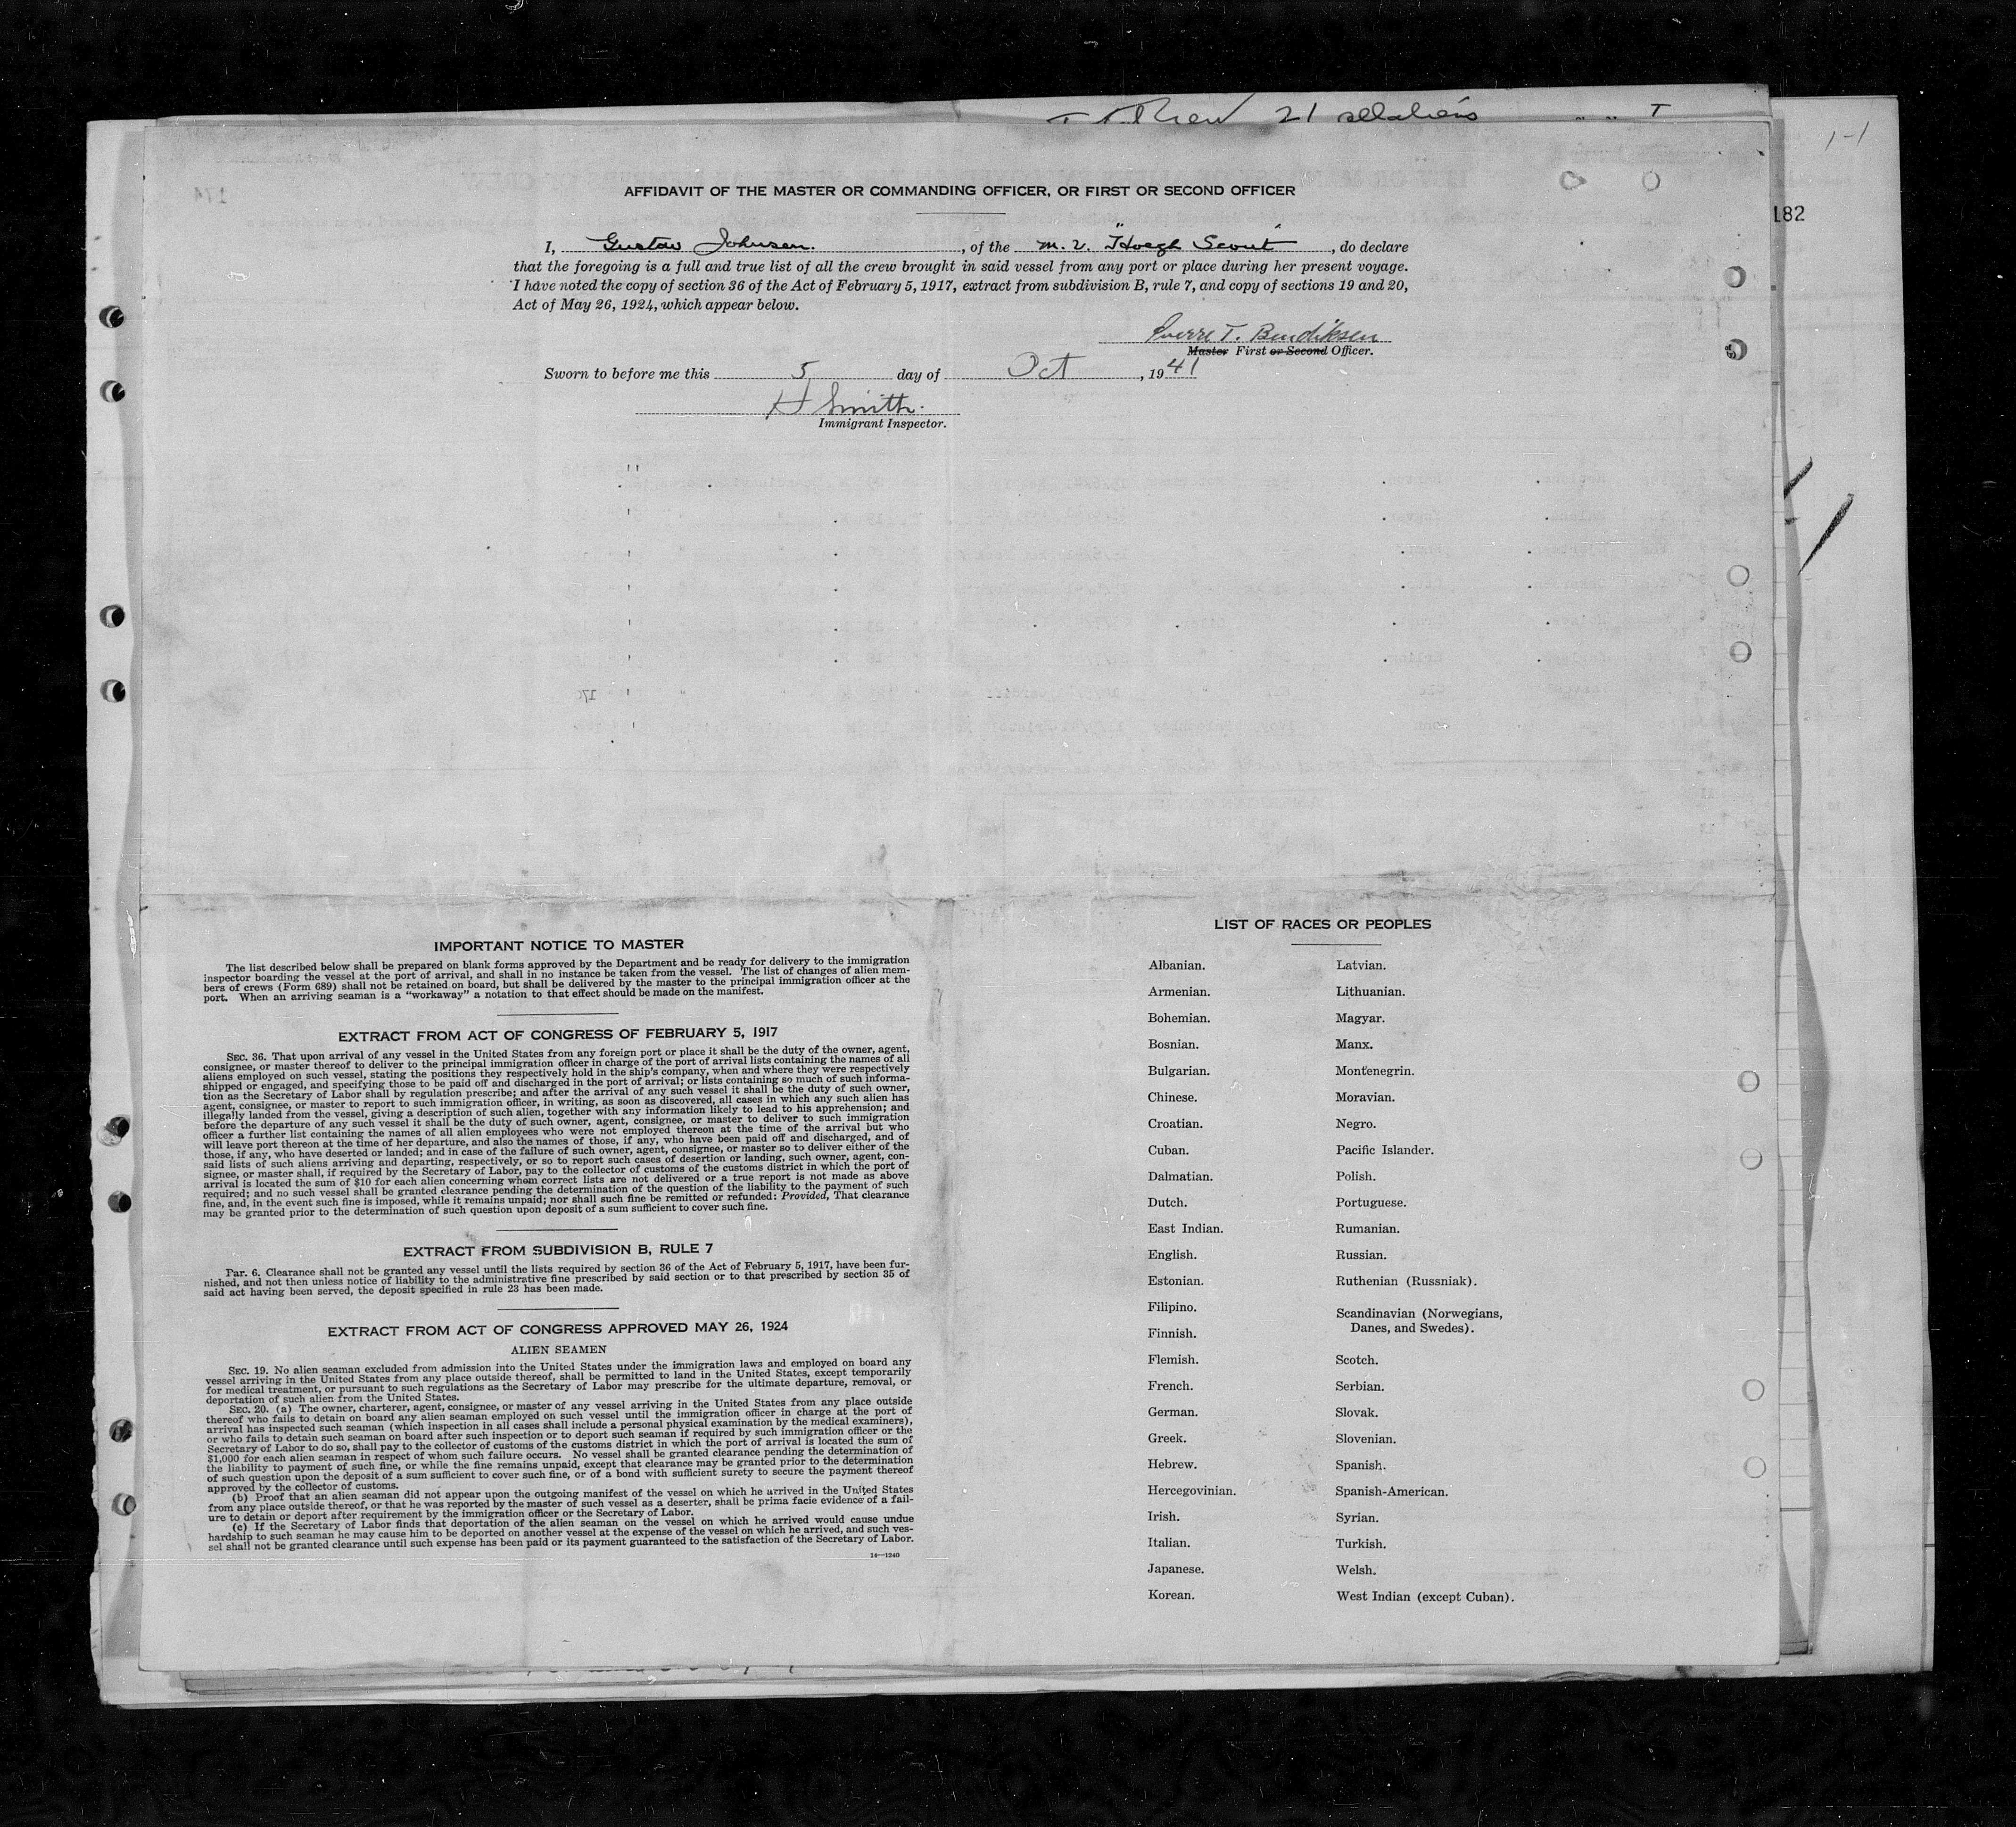 21
182
1-1
AFFIDAVIT OF THE MASTER OR COMMANDING OFFICER, OR FIRST OR SECOND OFFICER
I, Gustav Johnsen., of the M.V. "Hoegh Scout", do declare
that the foregoing is a full and true list of all the crew brought in said vessel from any port or place during her present voyage.
I have noted the copy of section 36 of the Act of February 5, 1917, extract from subdivision B, rule 7, and copy of sections 19 and 20,
Act of May 26, 1924, which appear below.
Sverre T. Bendiksen
Master First or Second Officer.
Sworn to before me this 5 day of Oct, 1941
H Smith.
Immigrant Inspector.
IMPORTANT NOTICE TO MASTER
The list described below shall be prepared on blank forms approved by the Department and be ready for delivery to the immigration
inspector boarding the vessel at the port of arrival, and shall in no instance be taken from the vessel. The list of changes of alien mem-
bers of crews (Form 689) shall not be retained on board, but shall be delivered by the master to the principal immigration officer at the
port. When an arriving seaman is a "workaway" a notation to that effect should be made on the manifest.
EXTRACT FROM ACT OF CONGRESS OF FEBRUARY 5, 1917
SEC. 36. That upon arrival of any vessel in the United States from any foreign port or place it shall be the duty of the owner, agent,
consignee, or master thereof to deliver to the principal immigration officer in charge of the port of arrival lists containing the names of all
aliens employed on such vessel, stating the positions they respectively hold in the ship's company, when and where they were respectively
shipped or engaged, and specifying those to be paid off and discharged in the port of arrival; or lists containing so much of such informa-
tion as the Secretary of Labor shall by regulation prescribe; and after the arrival of any such vessel it shall be the duty of such owner,
agent, consignee, or master to report to such immigration officer, in writing, as soon as discovered, all cases in which any such alien has
illegally landed from the vessel, giving a description of such alien, together with any information likely to lead to his apprehension; and
before the departure of any such vessel it shall be the duty of such owner, agent, consignee, or master to deliver to such immigration
officer a further list containing the names of all alien employees who were not employed thereon at the time of the arrival but who
will leave port thereon at the time of her departure, and also the names of those, if any, who have been paid off and discharged, and of
those, if any, who have deserted or landed; and in case of the failure of such owner, agent, consignee, or master so to deliver either of the
said lists of such aliens arriving and departing, respectively, or so to report such cases of desertion or landing, such owner, agent, con-
signee, or master shall, if required by the Secretary of Labor, pay to the collector of customs of the customs district in which the port of
arrival is located the sum of $10 for each alien concerning whom correct lists are not delivered or a true report is not made as above
required; and no such vessel shall be granted clearance pending the determination of the question of the liability to the payment of such
fine, and, in the event such fine is imposed, while it remains unpaid; nor shall such fine be remitted or refunded: Provided, That clearance
may be granted prior to the determination of such question upon deposit of a sum sufficient to cover such fine.
EXTRACT FROM SUBDIVISION B, RULE 7
Par. 6. Clearance shall not be granted any vessel until the lists required by section 36 of the Act of February 5, 1917, have been fur-
nished, and not then unless notice of liability to the administrative fine prescribed by said section or to that prescribed by section 35 of
said act having been served, the deposit specified in rule 23 has been made.
EXTRACT FROM ACT OF CONGRESS APPROVED MAY 26, 1924
ALIEN SEAMEN
SEC. 19. No alien seaman excluded from admission into the United States under the immigration laws and employed on board any
vessel arriving in the United States from any place outside thereof, shall be permitted to land in the United States, except temporarily
for medical treatment, or pursuant to such regulations as the Secretary of Labor may prescribe for the ultimate departure, removal, or
deportation of such alien from the United States.
SEC. 20. (a) The owner, charterer, agent, consignee, or master of any vessel arriving in the United States from any place outside
thereof who fails to detain on board any alien seaman employed on such vessel until the immigration officer in charge at the port of
arrival has inspected such seaman (which inspection in all cases shall include a personal physical examination by the medical examiners),
or who fails to detain such seaman on board after such inspection or to deport such seaman if required by such immigration officer or the
Secretary of Labor to do so, shall pay to the collector of customs of the customs district in which the port of arrival is located the sum of
$1,000 for each alien seaman in respect of whom such failure occurs. No vessel shall be granted clearance pending the determination of
the liability to payment of such fine, or while the fine remains unpaid, except that clearance may be granted prior to the determination
of such question upon the deposit of a sum sufficient to cover such fine, or of a bond with sufficient surety to secure the payment thereof
approved by the collector of customs.
(b) Proof that an alien seaman did not appear upon the outgoing manifest of the vessel on which he arrived in the United States
from any place outside thereof, or that he was reported by the master of such vessel as a deserter, shall be prima facie evidence of a fail-
ure to detain or deport after requirement by the immigration officer or the Secretary of Labor.
(c) If the Secretary of Labor finds that deportation of the alien seaman on the vessel on which he arrived would cause undue
hardship to such seaman he may cause him to be deported on another vessel at the expense of the vessel on which he arrived, and such ves-
sel shall not be granted clearance until such expense has been paid or its payment guaranteed to the satisfaction of the Secretary of Labor.
14—1240
LIST OF RACES OR PEOPLES
Albanian.
Armenian.
Bohemian.
Bosnian.
Bulgarian.
Chinese.
Croatian.
Cuban.
Dalmatian.
Dutch.
East Indian.
English.
Estonian.
Filipino.
Finnish.
Flemish.
French.
German.
Greek.
Hebrew.
Hercegovinian.
Irish.
Italian.
Japanese.
Korean.
Latvian.
Lithuanian.
Magyar.
Manx.
Montenegrin.
Moravian.
Negro.
Pacific Islander.
Polish.
Portuguese.
Rumanian.
Russian.
Ruthenian (Russniak).
Scandinavian (Norwegians,
Danes, and Swedes).
Scotch.
Serbian.
Slovak.
Slovenian.
Spanish.
Spanish-American.
Syrian.
Turkish.
Welsh.
West Indian (except Cuban).